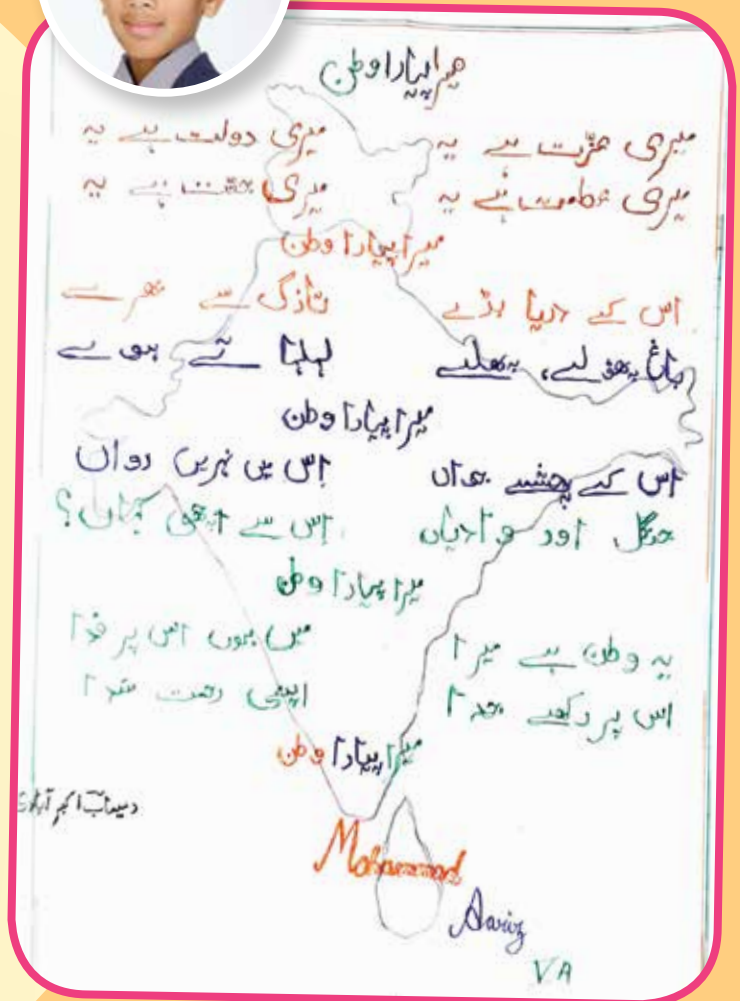 میرا پیارا وطن
میری عزّت ہے یہ میری دولت ہے یہ
میری عظمت ہے یہ میری جنّت ہے یہ
میرا پیارا وطن
اس کے دریا بڑے تازگی سے بھرے
باغ پھولے، پھلے لہلہاتے ہوے
میرا پیارا وطن
اس کے چشمے جواں اِس میں نہریں رواں
جنگل اور وادیاں اِس سے اچھی کہاں؟
میرا پیارا وطن
یہ وطن ہے میرا میں ہوں اس پر فدا
اس پر رکھے خدا اپنی رحمت سدا
میرا پیارا وطن
اکبر آبادی
Mohammad
Aariz
VA